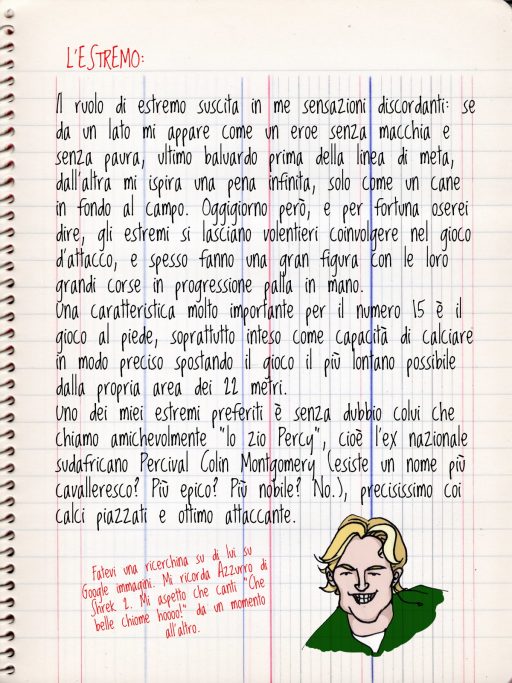 L'ESTREMO:
Il ruolo di estremo suscita in me sensazioni discordanti: se
da un lato mi appare come un eroe senza macchia e
senza paura, ultimo baluardo prima della linea di meta,
dall'altra mi ispira una pena infinita, solo come un cane
in fondo al campo. Oggigiorno però, e per fortuna oserei
dire, gli estremi si lasciano volentieri coinvolgere nel gioco
d'attacco, e spesso fanno una gran figura con le loro
grandi corse in progressione palla in mano.
Una caratteristica molto importante per il numero 15 è il
gioco al piede, soprattutto inteso come capacità di calciare
in modo preciso spostando il gioco il più lontano possibile
dalla propria area dei 22 metri.
Uno dei miei estremi preferiti è senza dubbio colui che
chiamo amichevolmente "lo zio Percy", cioè l'ex nazionale
sudafricano Percival Colin Montgomery (esiste un nome più
cavalleresco? Più epico? Più nobile? No.), precisissimo coi
calci piazzati e ottimo attaccante.
Fatevi una ricerchina su di lui su
Google immagini. Mi ricorda Azzurro di
Shrek 2. Mi aspetto che canti "Che
belle chiome hoooo!" da un momento
all'altro.